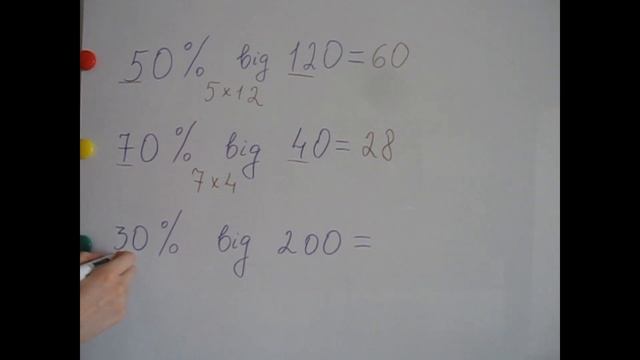 50% від 120=60
5×12
70% від 40=28
7×4
30% від 200=